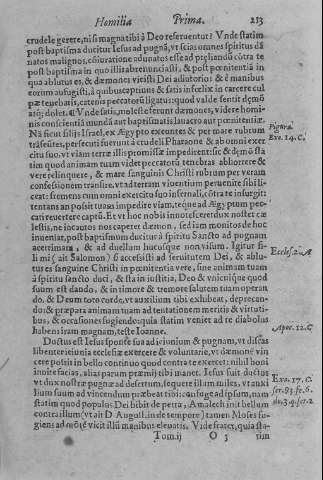 Homilia Prima. 213
crudele gerere, nisi magna tibi à Deo reseruentur? Vnde statim
post baptisma ducitur Iesus ad pugnā, vt scias omnes spiritus dā
natos malignos, cōiuratione adunatos esse ad
post baptisma in quo illi abrenunciasti, & post pœnitentiā in
qua ablutus es, & dæmones vicisti Dei adiutorio: & è manibus
eorum aufugisti, à quibus captiuus & satis infœlix in carcere cul
pæ tenebaris, catenis peccatorū ligatus: quod valde sentit dęmō
atq; dolet. Vnde satis, molestè ferunt dæmones, videre homi-
nis conscientiā mundā aut baptismatis lauacro aut pœnitentiæ.
Nā sicut filijs Israel, ex Ægypto exeuntes & per mare rubrum
trāseūtes, persecuti fuerunt à crudeli Pharaone & ab omni exer
citu suo, vt viam terræ illis promissæ impedirent: sic & dęmō sta
tim quod animam tuam videt peccatorū tenebras abhorrere &
vere relinquere, & mare sanguinis Christi rubrum per veram
confessionem transire, vt ad terram viuentium peruenire possibili-
ceat: fremens cum omni exercitu suo infernali, cōtra te insurgit
tentans an possit tuas impedire vias, teque ad Ægyptum pec-
cati reuertere captū. Et vt hoc nobis innotesceret dux noster cæ
lestis, ne incautos nos caperet dæmon, sed iam monitos de hoc
inueniat, post baptismum ducitur à spiritu Sancto ad pugnam
acerrimam, & ad duellum hucusque non visum. Igitur fi-
li mi (ait Salomon) si accessisti ad seruitutem Dei, & ablu-
tus es sanguine Christi in pœnitentia vere, sine animam tuam
à spiritu sancto duci, & sta in iustitia, Deo & vnicuique quod
suum est dando, & in timore & tremore salutem tuam operan
do, & Deum toto corde, vt auxilium tibi exhibeat, deprecan-
do: & præpara animam tuam ad tentationem meritis & virtuti-
bus, & occasiones fugiendo: quia statim veniet ad te diabolus
habens iram magnam, teste Ioanne.
Doctus est Iesus sponte sua ad ieiunium & pugnam, vt discas
libenter ieiunia ecclesiæ exercere & voluntarie, vt dæmone vin
cere possis in bello continuo quod contra te exercet: nihil boni
inuite facias, alias parum præmij tibi manet. Iesus fuit ductus
vt dux nostræ pugnæ ad desertum, sequere illum miles, vt auxi
lium suum ad vincendum præbeat tibi: confuge ad ipsum, nam
statim quod populus Dei bibit de petra, Amalech init bellum
contra illum (vt ait D. August. in de tempore) tamen Moses fu-
giens ad mōtē vicit illū manibus eleuatis. Vide frater, quia sta-
Tom. ij O 3 tim
Figura.
Exo. 14. C.
Eccles. 2. A
Apoc. 12. C
Exo. 17. C.